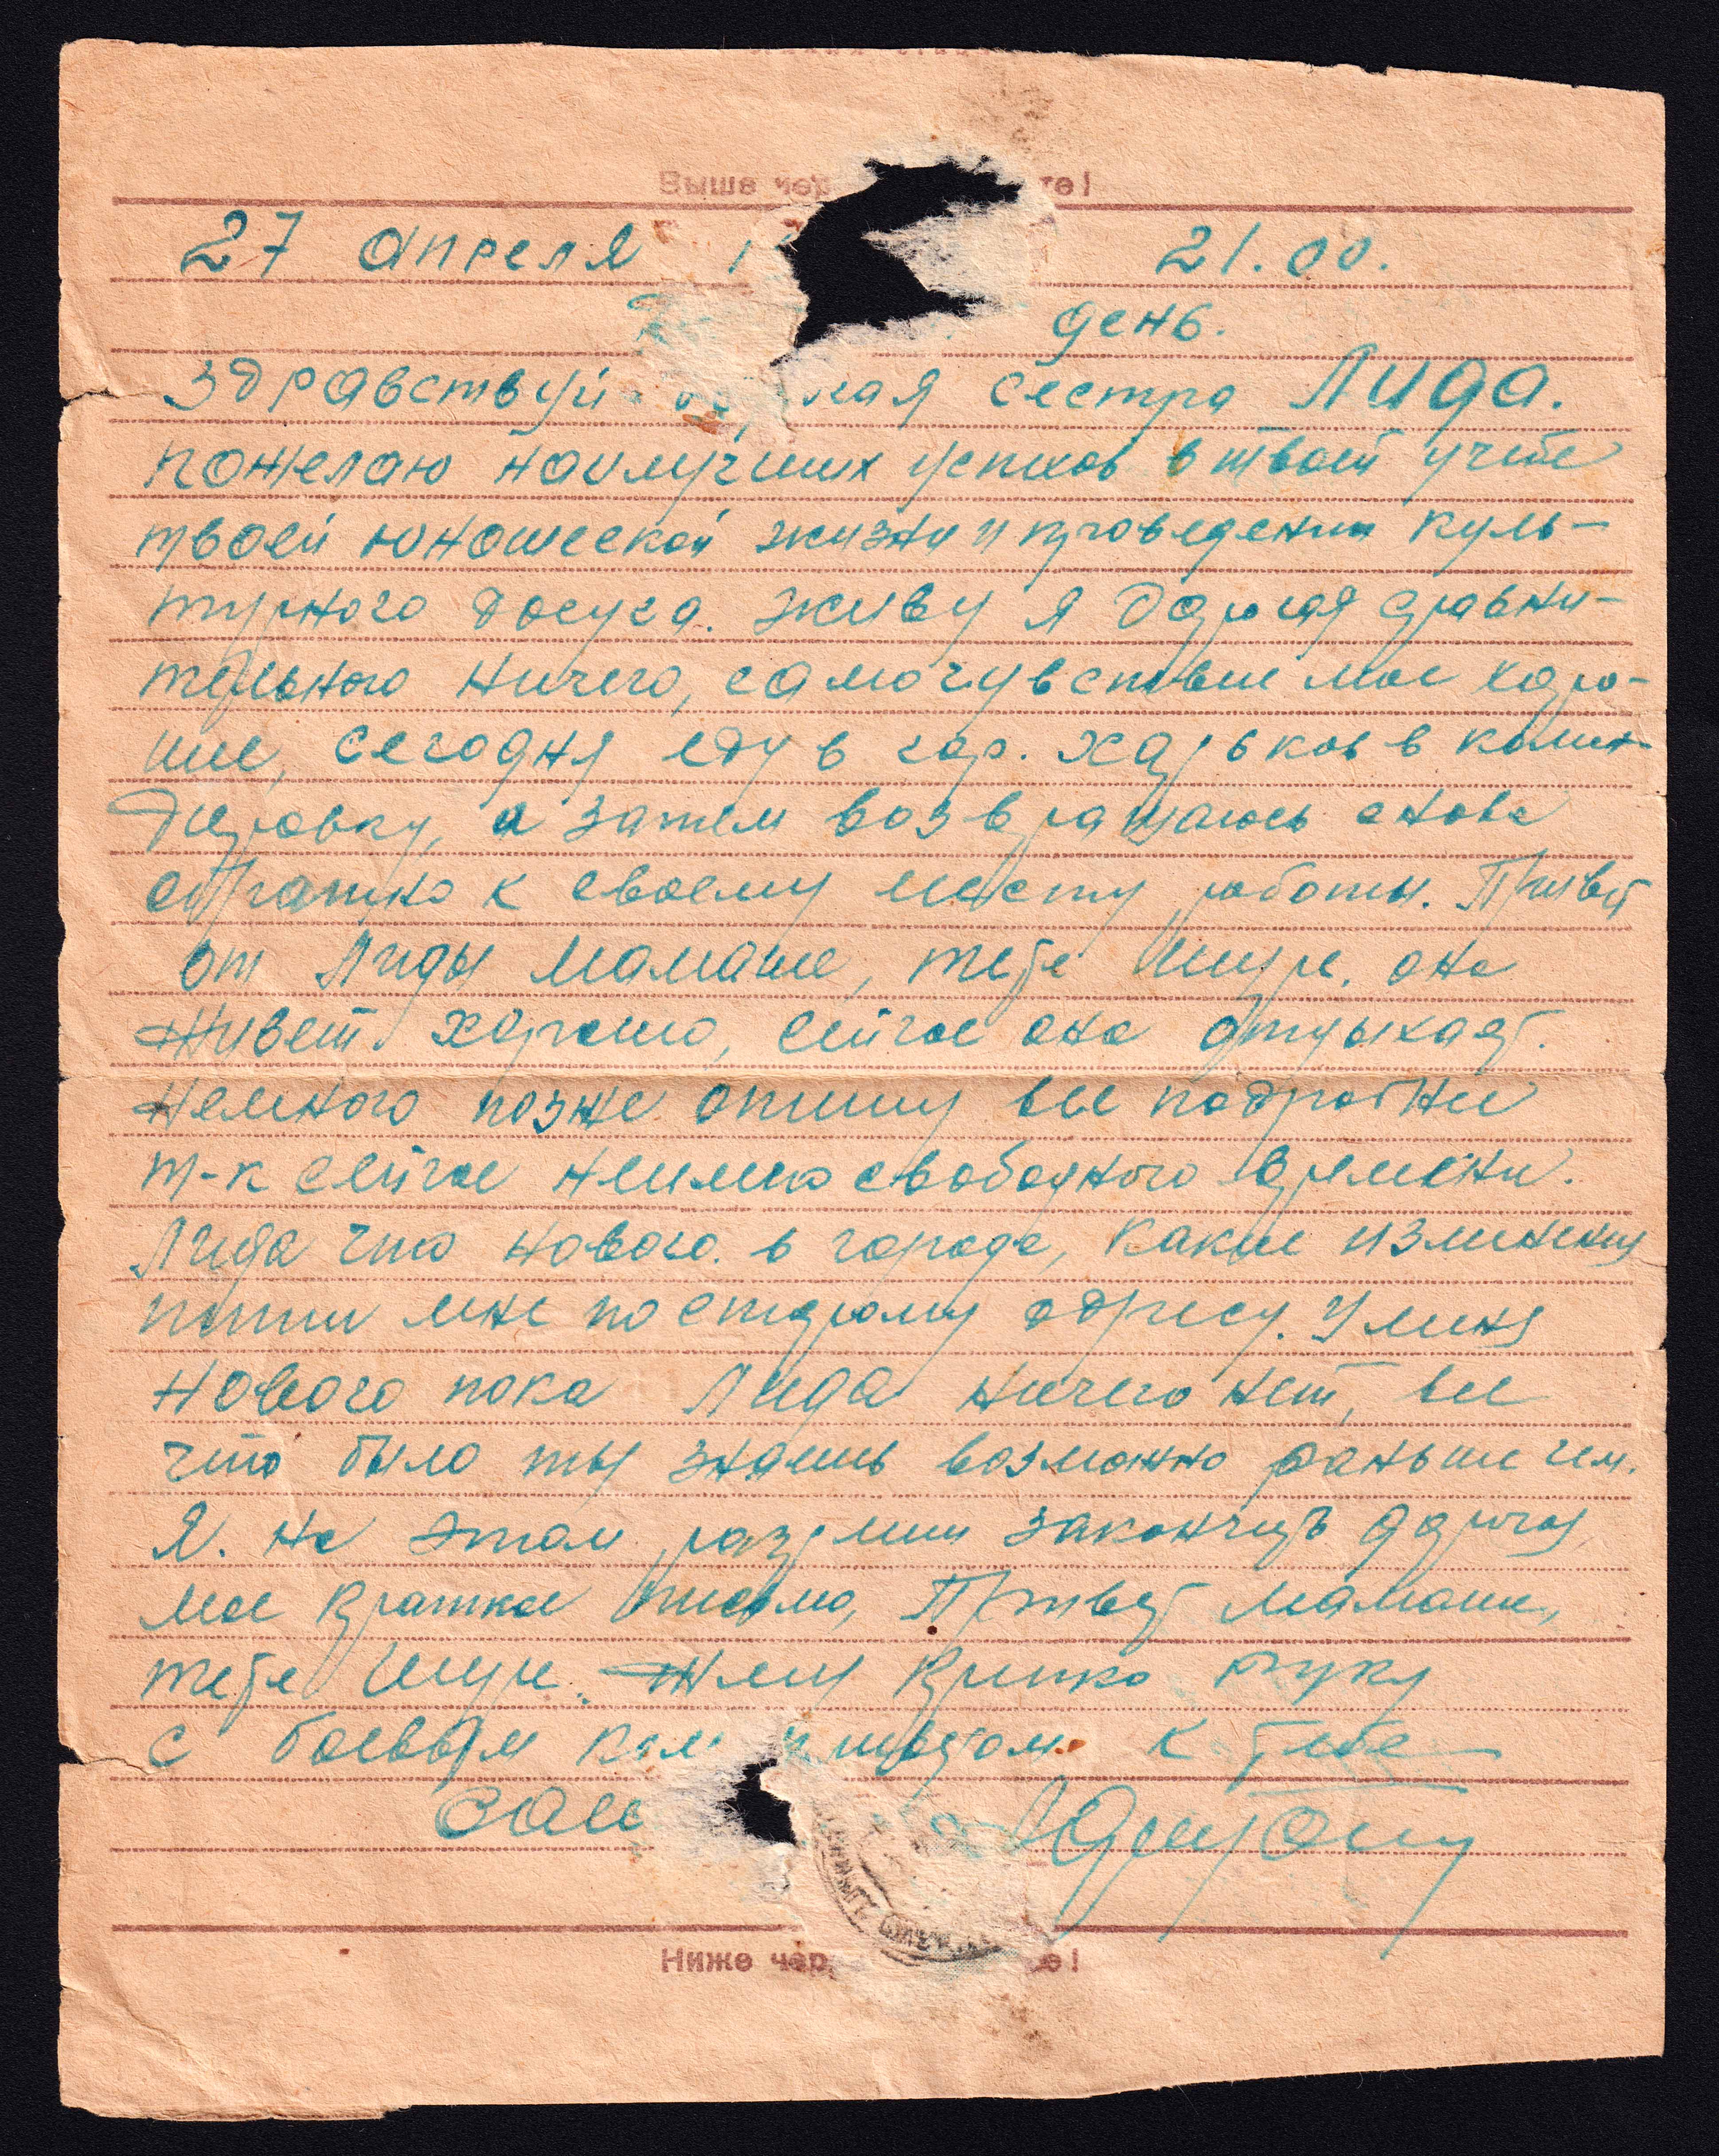 Выше чер те!
27 апреля 21.00.
день.
Здравствуй сестра Лида.
пожелаю наилучших успехов в твоей учебе
твоей юношеской жизни и проведении куль-
турного досуга. Живу я дорогая сравни-
тельного ничего, самочувствие мое хоро-
шие, сегодня еду в гор. Харьков в коман-
дировку, а затем возвращаюсь снова
обратно к своему месту работы. Привет
от Лиды мамаше, тебе Шуре. она
живет хорошо, сейчас она отдыхает.
немного позже опишу все подробнее
т-к сейчас неимею свободного времени.
Лида что нового в городе, какие изминения
пиши мне по старому адресу. У миня
нового пока Лида ничего нет, все
что было ты знаешь возможно раньше чем.
Я. на этом разреши закончить дорогая
мое краткое письмо, Привет мамаши,
тебе Шуре. Жму крепко руку
с боевым приветом к тебе
Ниже чер е!